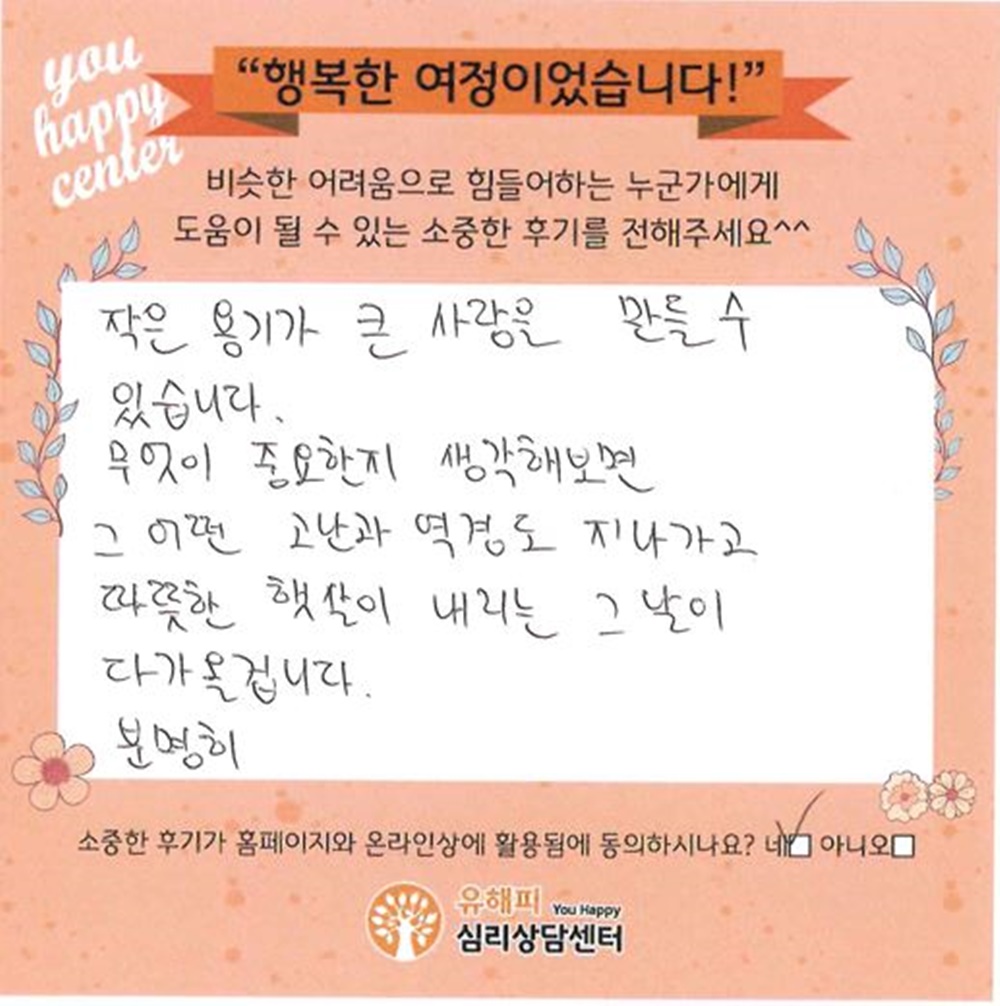 you
happy
center
“행복한 여정이었습니다!”
비슷한 어려움으로 힘들어하는 누군가에게
도움이 될 수 있는 소중한 후기를 전해주세요^^
작은 용기가 큰 사람을 만들 수
있습니다.
무엇이 중요한지 생각해보면
그 어떤 고난과 역경도 지나가고
따뜻한 햇살이 내리는 그 날이
다가올겁니다.
분명히
소중한 후기가 홈페이지와 온라인상에 활용됨에 동의하시나요? 네 아니오
유해피 You Happy
심리상담센터